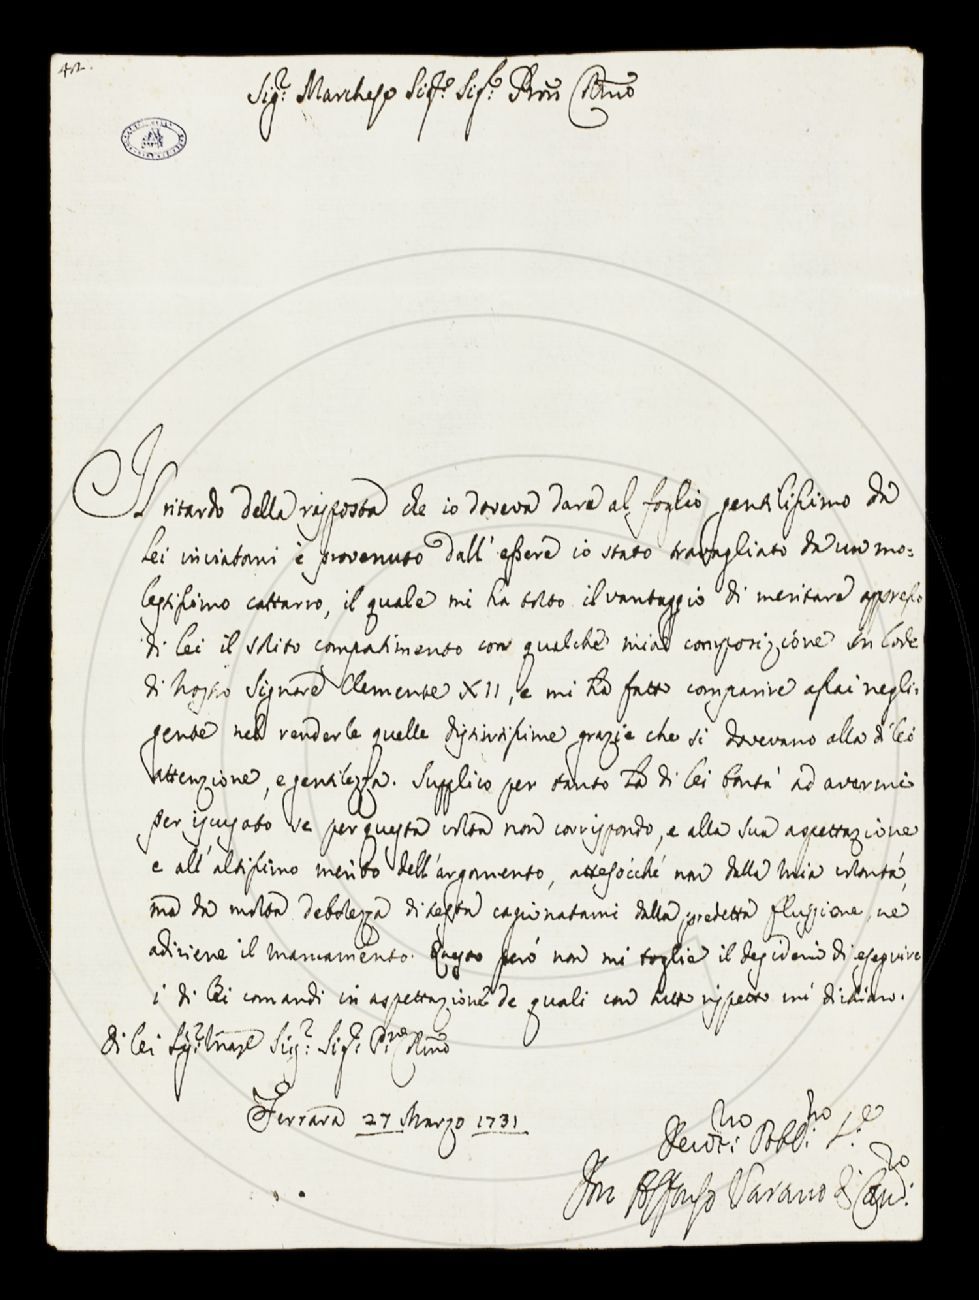 42.
Sig.r Marchese Sig.r Sig.r Pron Colmo
Il ritardo della risposta che io doveva dare al foglio gentilissimo da
Lei inviatomi è provenuto dall' essere io stato travagliato da un mo=
lestissimo cattarro, il quale mi ha tolto il vantaggio di meritare appresso
di lei il solito compatimento con qualche mia composizione in lode
di Nostro Signore Clemente XII, e mi ha fatto comparire assai negli=
gente nel renderle quelle distintissime grazie che si dovevano alla di lei
attenzione, e gentilezza. Supplico per tanto la di lei bontà ad avermi
per iscusato se per questa volta non corrispondo, e alla sua aspettazione
e all' altissimo merito dell' argomento, attesocché non dalla mia volontà,
ma da molta debolezza di testa cagionatami dalla predetta flussione, ne
adiviene il mancamento. Questo però non mi toglie il desiderio di eseguire
i di lei comandi in aspettazione de quali con tutto rispetto mi dichiaro.
di lei Sig.r Sig.r Sig.r
Ferrara 27 Marzo 1731
Devot.mo Obbl.mo
Don Alfonso Varano di